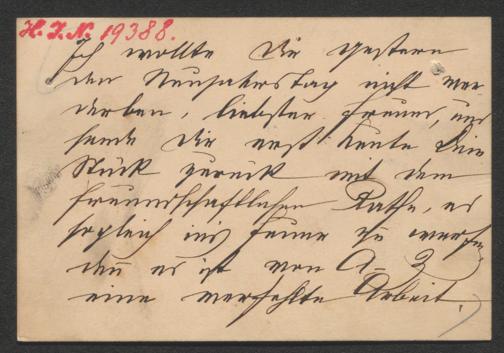 H. I. N. 19388.
Ich wollte dir gestern
den Neujahrstag nicht ver
derben, liebster Freund, und
sende dir erst heute dein
Stück zurück mit dem
freundschaftlichen Rathe, es
sogleich ins Feuer zu werfen,
den es ist von A–Z
eine verfehlte Arbeit.